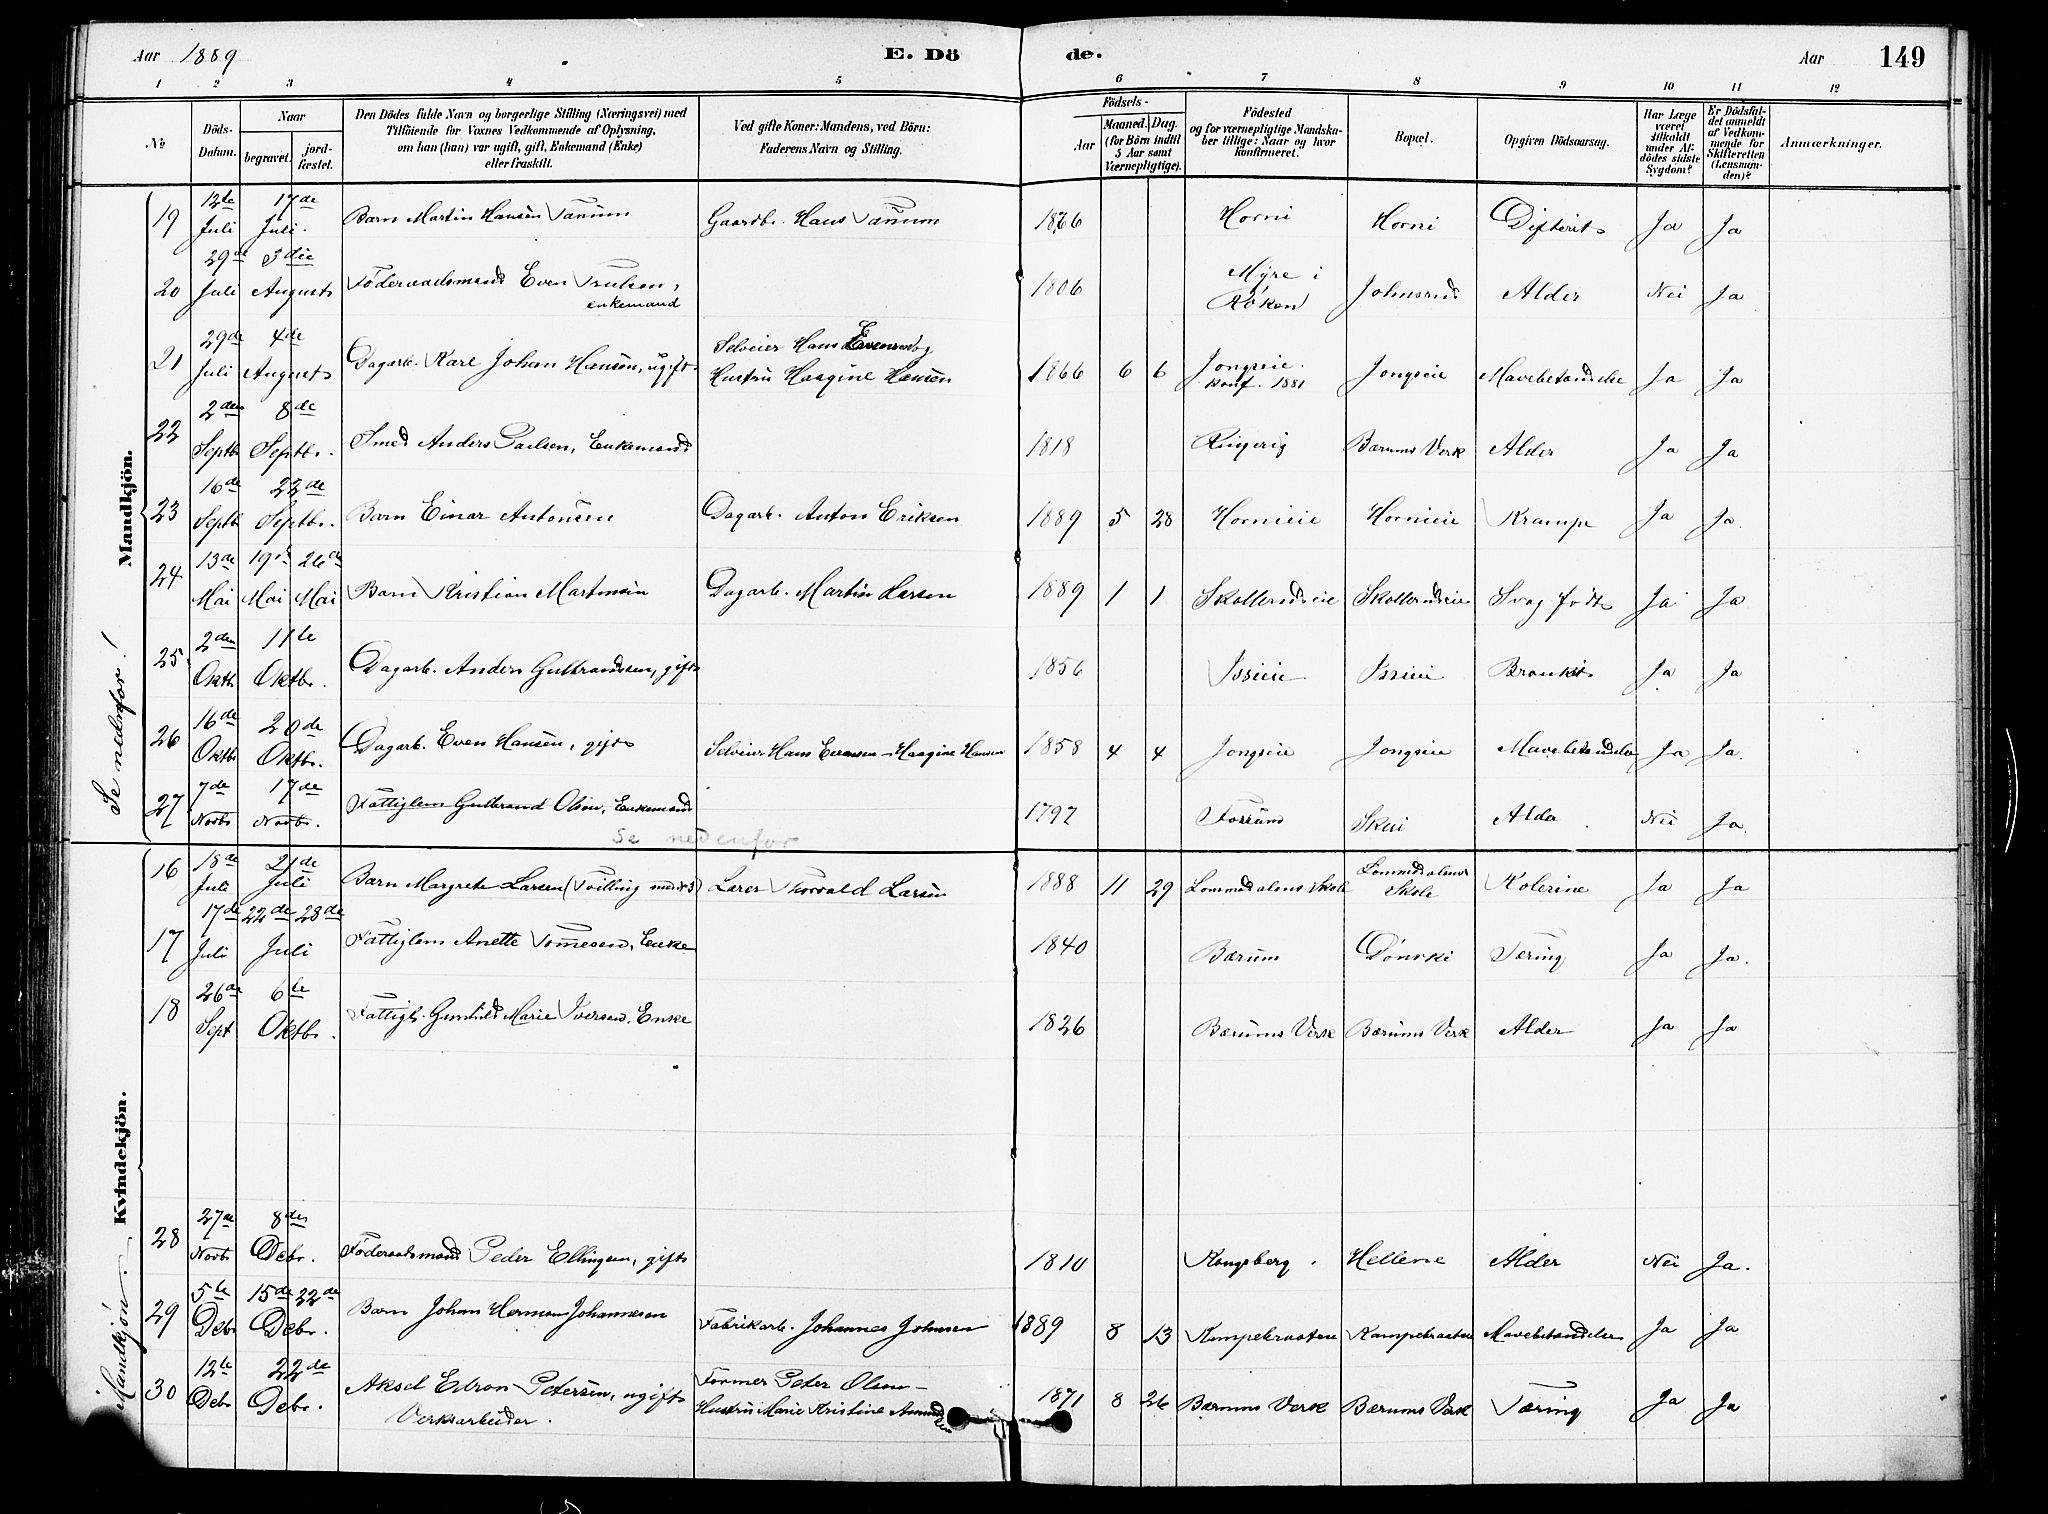 Aar 1889 E. Dö de. Aar 149
1 2 3 4 5 6 7 8 9 10 11 12
№ Döds-Datum. Naar begravet. jordfæstet. Den Dödes fulde Navn og borgerlige Stilling (Næringsvei) med Tilföiende for Voxnes Vedkommende af Oplysning, om han (hun) var ugift, gift, Enkemand (Enke) eller fraskilt. Ved gifte Koner: Mandens, ved Börn: Faderens Navn og Stilling. Födsels- Aar Maaned. Dag. (for Börn indtil 5 Aar samt Værnepligtige). Födested og for værnepligtige Mandskaber tillige: Naar og hvor konfirmeret. Bopæl. Opgiven Dödsaarsag. Har Læge været tilkaldt under Afdödes sidste Sygdom? Er Dödsfaldet anmeldt af Vedkommende for Skifteretten (Lensmanden)? Anmærkninger.
Mandkjön.
Se nedenfor!
19 12te Juli 17de Juli. Barn Martin Hansen Tanum Gaardbr. Hans Tanum 1876 Horni Horni Difterit Ja Ja
20 29de Juli 3die August Föderaadsmand Even Trulsen, enkemand 1806 Myre i Röken Johnsrud Alder Nei Ja
21 29de Juli 4de August Dagarb. Karl Johan Hansen, ugift Selveier Hans Evensen og Hustru Haagine Hansen 1866 6 6 Jongseie. Konf. 1881 Jongseie Mavebetændelse Ja Ja
22 2den Septb. 8de Septbr. Smed Anders Paulsen, Enkemand 1818 Ringerig Bærums Verk Alder Ja Ja
23 16de Septb 22de Septbr. Barn Einar Antonsen Dagarb. Anton Eriksen 1889 5 28 Hornieie Hornieie Krampe Ja Ja.
24 13de Mai 19de Mai 26de Mai Barn Kristian Martinsen Dagarb. Martin Larsen 1889 1 1 Skollerudeie Skollerudeie Svag födt Ja Ja
25 2den Oktb. 11te Oktbr. Dagarb. Anders Gulbrandsen, gift 1856 Isieie Isieie Bronkit Ja Ja
26 16de Oktb. 20de Oktbr. Dagarb. Even Hansen, gift Selveier Hans Evensen - Haagine Hansen 1858 4 4 Jongseie Jongseie Mavebetændelse Ja Ja.
27 7de Novbr 17de Novbr. Fattiglem Gulbrand Olsen, Enkemand 1797 Fossum Skui Alder. Nei Ja.
Se nedenfor
Kvindekjön.
16 18de Juli 21de Juli Barn Margrete Larsen (Tvilling med №3) Lærer Thorvald Larsen 1888 11 29 Lommedalens Skole Lommedalens Skole Kolerine Ja Ja
17 17de Juli 22de 28de Juli Fattiglem Anette Tomesen, Enke 1840 Bærum Dönski Tæring Ja Ja.
18 26de Sept 6te Oktbr. Fattigl. Gunhild Marie Iversen, Enke 1826 Bærums Verk Bærums Verk Alder Ja Ja
Mandkjön.
28 27de Novbr 8de Debr. Föderaadsmand Peder Ellingsen, gift 1810 Kongsberg. Hellerne Alder Nei Ja.
29 5te Debr 15de 22de Debr. Barn Johan Herman Johannesen Fabrikarb. Johannes Johnsen 1889 8 13 Kampebraaten Kampebraaten Mavebetændelse Ja Ja
30 12te Debr 22de Debr. Aksel Edvon Petersen, ugift Verksarbeider. Former Peter Olsen - Hustru Marie Kristine 1871 8 26 Bærums Verk Bærums Verk Tæring Ja Ja